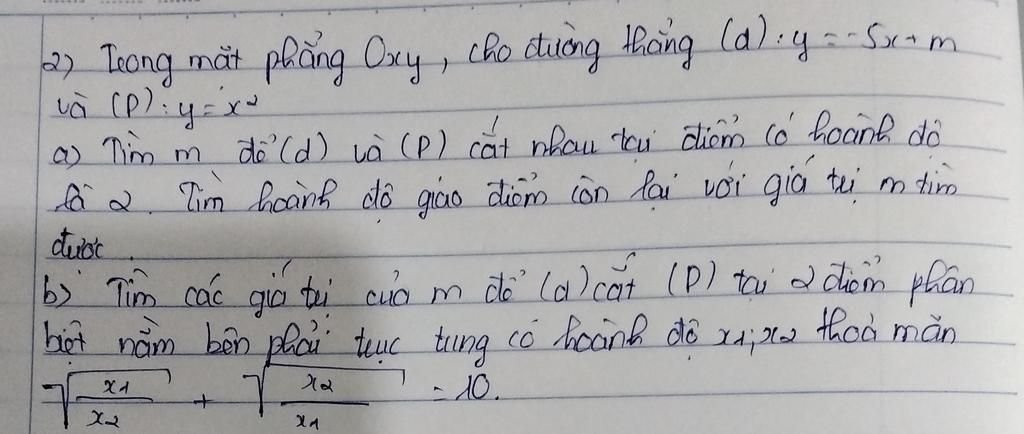 2) Trong mặt phẳng Oxy, cho đường thẳng (d): y = -5x + m
và (P): y = x²
a) Tìm m để (d) và (P) cắt nhau tại điểm có hoành độ
là 2. Tìm hoành độ giao điểm còn lại với giá trị m tìm
được.
b) Tìm các giá trị của m để (d) cắt (P) tại 2 điểm phân
biệt nằm bên phải trục tung có hoành độ x1; x2 thoả mãn
√(x1/x2) + √(x2/x1) = 10.